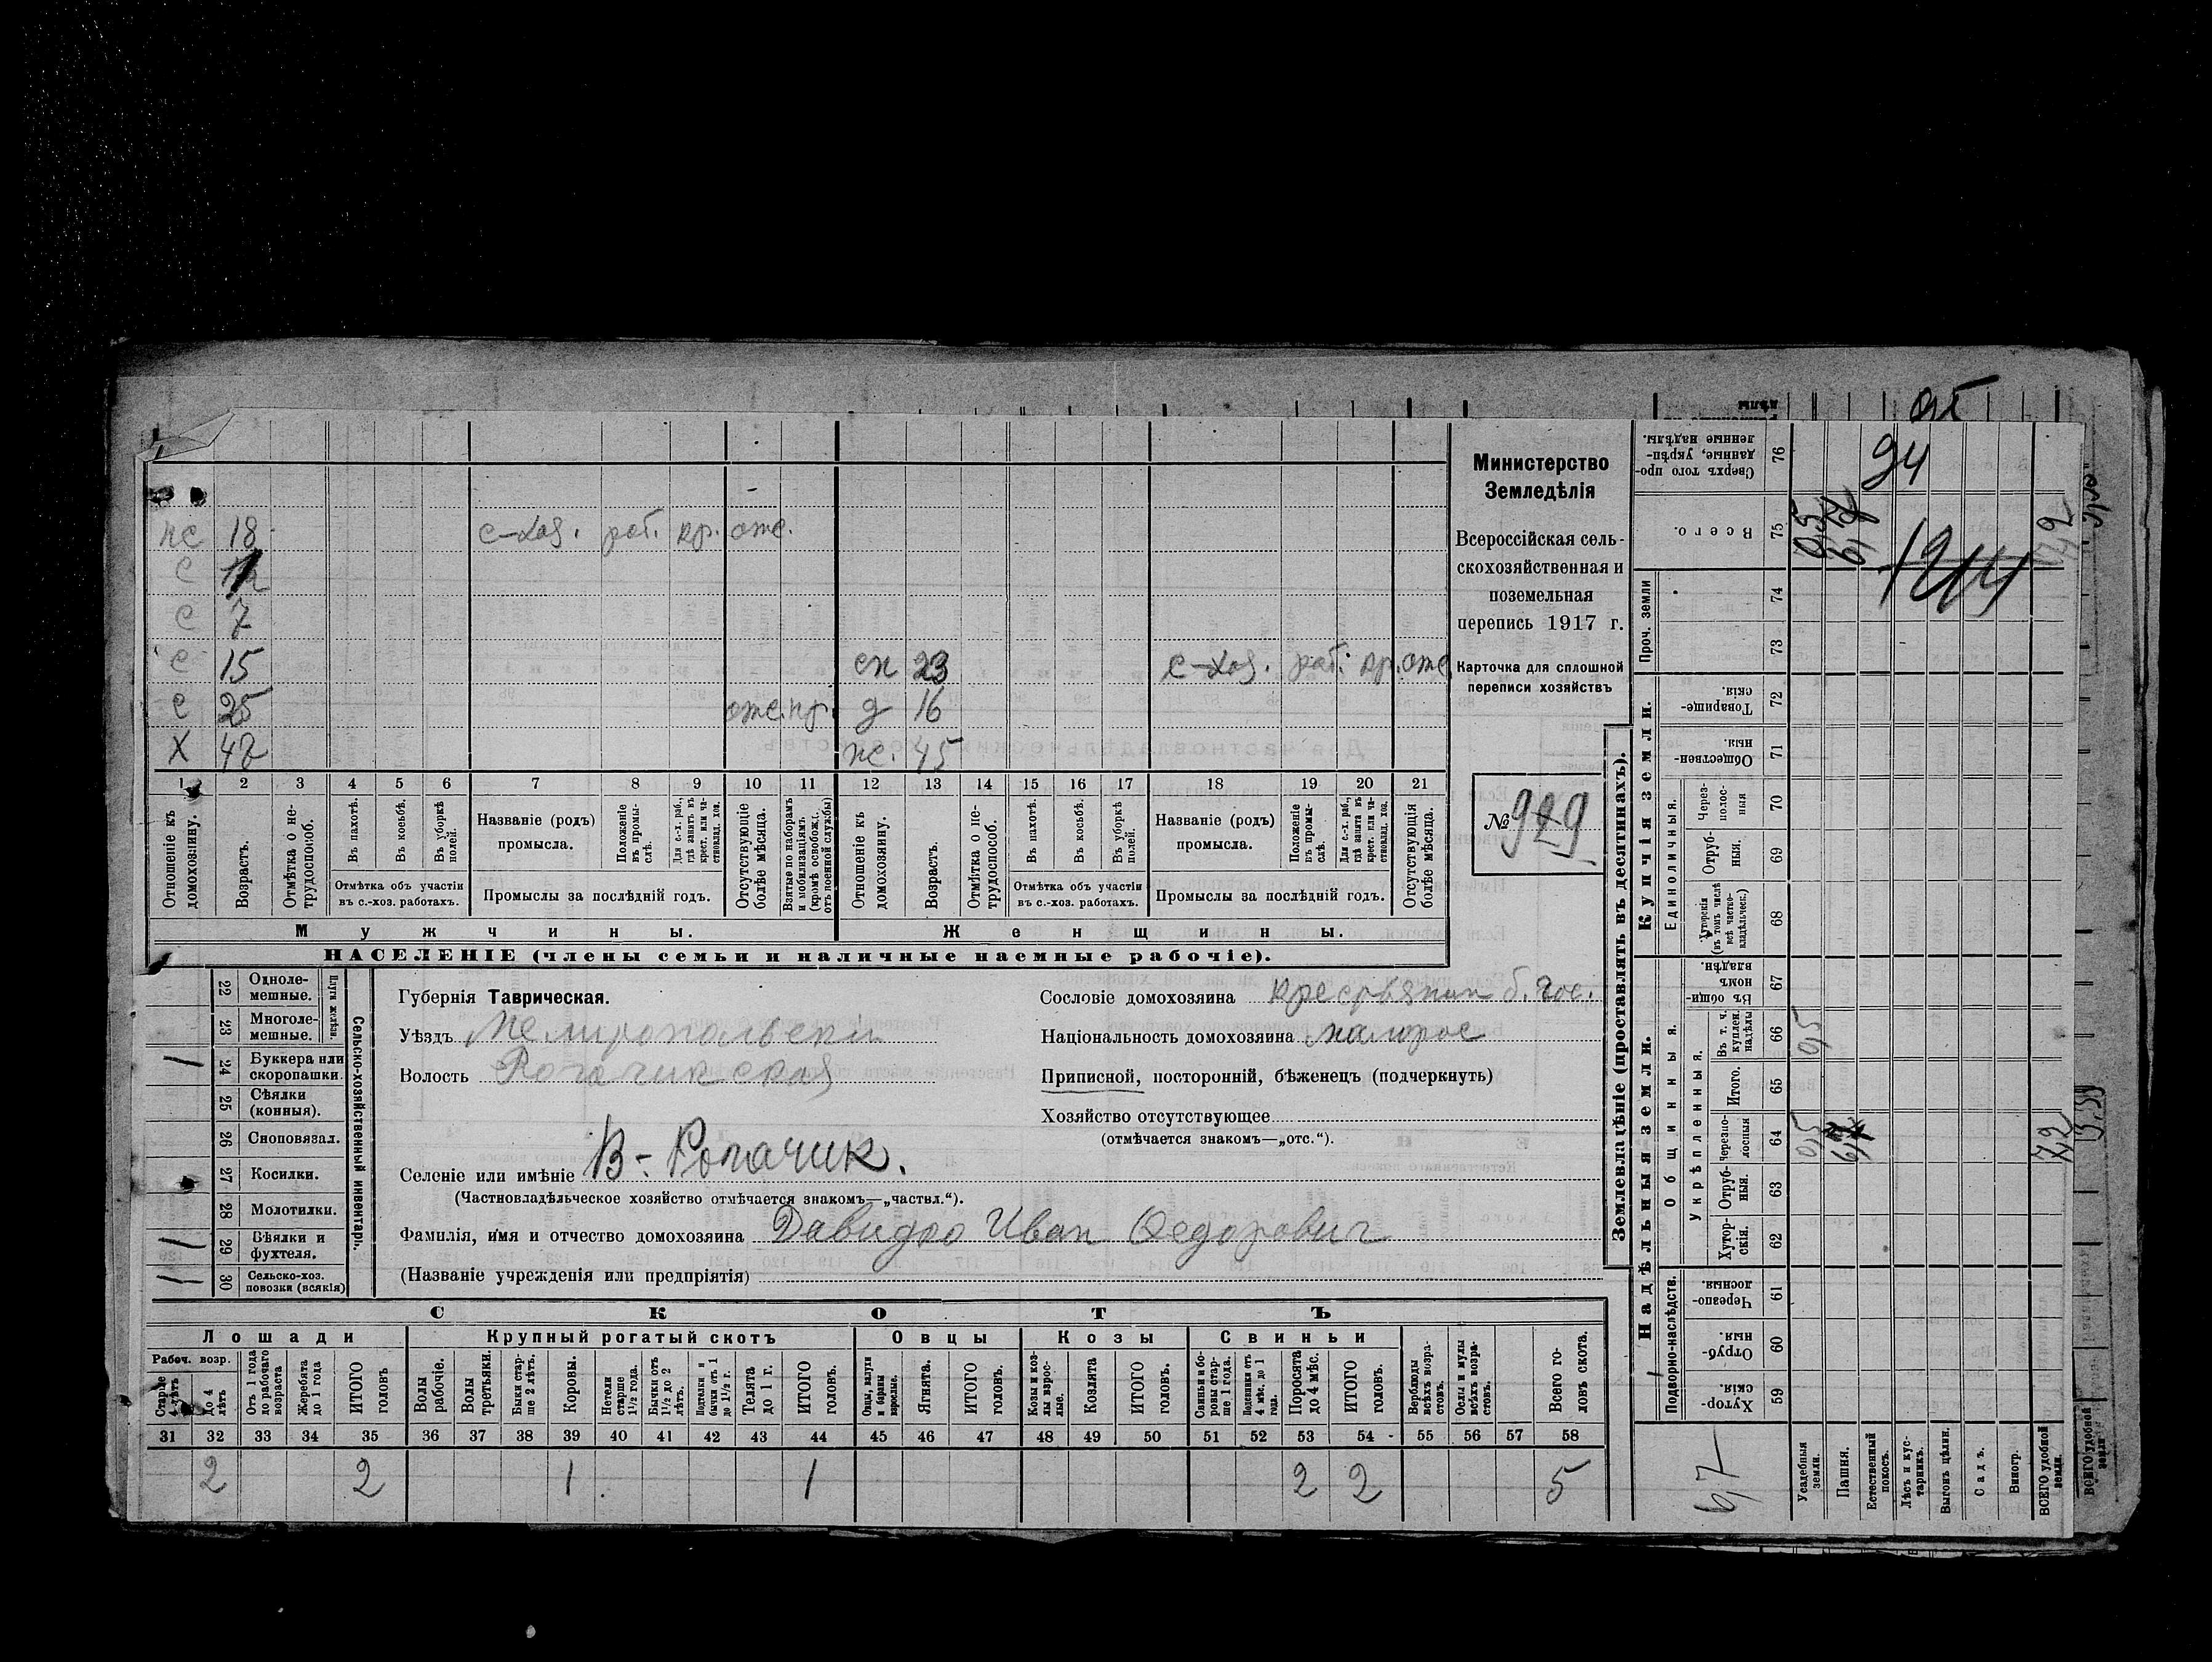 94
пс 18 с-хоз. раб. кр. отс.
с 12
с 7
с 15 сн 23 с-хоз. раб. кр. отс
с 25 отс. кр. д 16
Х 42 ж. 45
1 2 3 4 5 6 7 8 9 10 11 12 13 14 15 16 17 18 19 20 21
Отношеніе къ домохозяину.
Возрастъ.
Отмѣтка о не-трудоспособ.
Въ пахотѣ.
Въ косьбѣ.
Въ уборкѣ полей.
Отмѣтка объ участіи
въ с.-хоз. работахъ.
Названіе (родъ)
промысла.
Положеніе въ промы-слѣ.
Для с.-х. раб., гдѣ занятъ въ крест. или ча-стновлад. хоз.
Промыслы за послѣдній годъ.
Отсутствующіе болѣе мѣсяца.
Взятые по наборамъ и мобилизаціямъ. (кромѣ освобожд. отъ военной службы)
Отношеніе къ домохозяину.
Возрастъ.
Отмѣтка о не-трудоспособ.
Въ пахотѣ.
Въ косьбѣ.
Въ уборкѣ полей.
Отмѣтка объ участіи
въ с.-хоз. работахъ.
Названіе (родъ)
промысла.
Положеніе въ промы-слѣ.
Для с.-х. раб., гдѣ занятъ въ крест. или ча-стновлад. хоз.
Промыслы за послѣдній годъ.
Отсутствующія болѣе мѣсяца.
Мужчины. Женщины.
НАСЕЛЕНІЕ (члены семьи и наличные наемные рабочіе).
Министерство
Земледѣлія
Всероссійская сель-
скохозяйственная и
поземельная
перепись 1917 г.
Карточка для сплошной
переписи хозяйствъ
№ 929
Сельско-хозяйственный инвентарь.
Плуги желѣзн.
22 Однолемешные.
23 Многолемешные.
24 Буккера или скоропашки. 1
25 Сѣялки (конныя).
26 Сноповязал.
27 Косилки.
28 Молотилки.
29 Вѣялки и фухтеля. 1
30 Сельско-хоз. повозки (всякія) 1
Губернія Таврическая.
Уѣздъ Мелитопольскій
Волость Рогачикская
Селеніе или имѣніе В-Рогачик.
(Частновладѣльческое хозяйство отмѣчается знакомъ—„частвл.“).
Фамилія, имя и отчество домохозяина Давидко Иван Федорович
(Названіе учрежденія или предпріятія)
Сословіе домохозяина крестьянин б. гос.
Національность домохозяина малорос
Приписной, посторонній, бѣженецъ (подчеркнуть)
Хозяйство отсутствующее
(отмѣчается знакомъ—„отс.“).
СКОТЪ
Лошади Крупный рогатый скотъ Овцы Козы Свиньи
Рабоч. возр.
Старше 4 лѣтъ
До 4 лѣтъ
Отъ 1 года до рабочаго возраста
Жеребята до 1 года
ИТОГО головъ
Волы рабочіе.
Волы третьяки.
Быки стар-ше 2 лѣтъ.
Коровы.
Нетели старше 1½ года.
Бычки отъ 1½ до 2 лѣтъ.
Подтелки и бычки отъ 1 до 1½ г.
Телята до 1 г.
ИТОГО головъ.
Овцы, валухи и бараны взрослые.
Ягнята.
ИТОГО головъ.
Козы и коз-лы взрос-лые.
Козлята
ИТОГО головъ.
Свиньи и бо-ровы стар-ше 1 года.
Подсвинки отъ 4 мѣс. до 1 года.
Поросята до 4 мѣс.
ИТОГО головъ.
Верблюды всѣхъ возра-стовъ.
Ослы и мулы всѣхъ возра-стовъ.
Всего го-ловъ скота.
31 32 33 34 35 36 37 38 39 40 41 42 43 44 45 46 47 48 49 50 51 52 53 54 55 56 57 58
2 2 1 1 2 2 5
Землевладѣніе (проставлять въ десятинахъ).
Надѣльныя земли. Купчія земли. Проч. земли
Подворно-наслѣдств.
Общинныя.
Укрѣпленныя.
Единоличныя.
59 Хутор-скія.
60 Отруб-ныя.
61 Черезпо-лосныя.
62 Хутор-скія.
63 Отруб-ныя.
64 Черезпо-лосныя
65 Итого.
66 Въ т. ч. куплен. надѣлы
67 Въ общин. владѣн.
68 Хуторскія (въ томъ числѣ всѣ частно-владѣльческ.)
69 Отруб-ныя.
70 Через-полос-ныя
71 Обществен-ныя
72 Товарище-скія.
73
74
75 Всего.
76 Сверхъ того про-данные, укрѣп-ленные надѣлы.
Усадебныя земли. 0,5 0,5 0,5
Пашня.
Естественный покосъ.
Лѣсъ и кус-тарникъ.
Выгонъ цѣлин.
Садъ.
Виногр.
ВСЕГО удобной земли. 7,2 7,2
6,7
ВСЕГО удобной земли